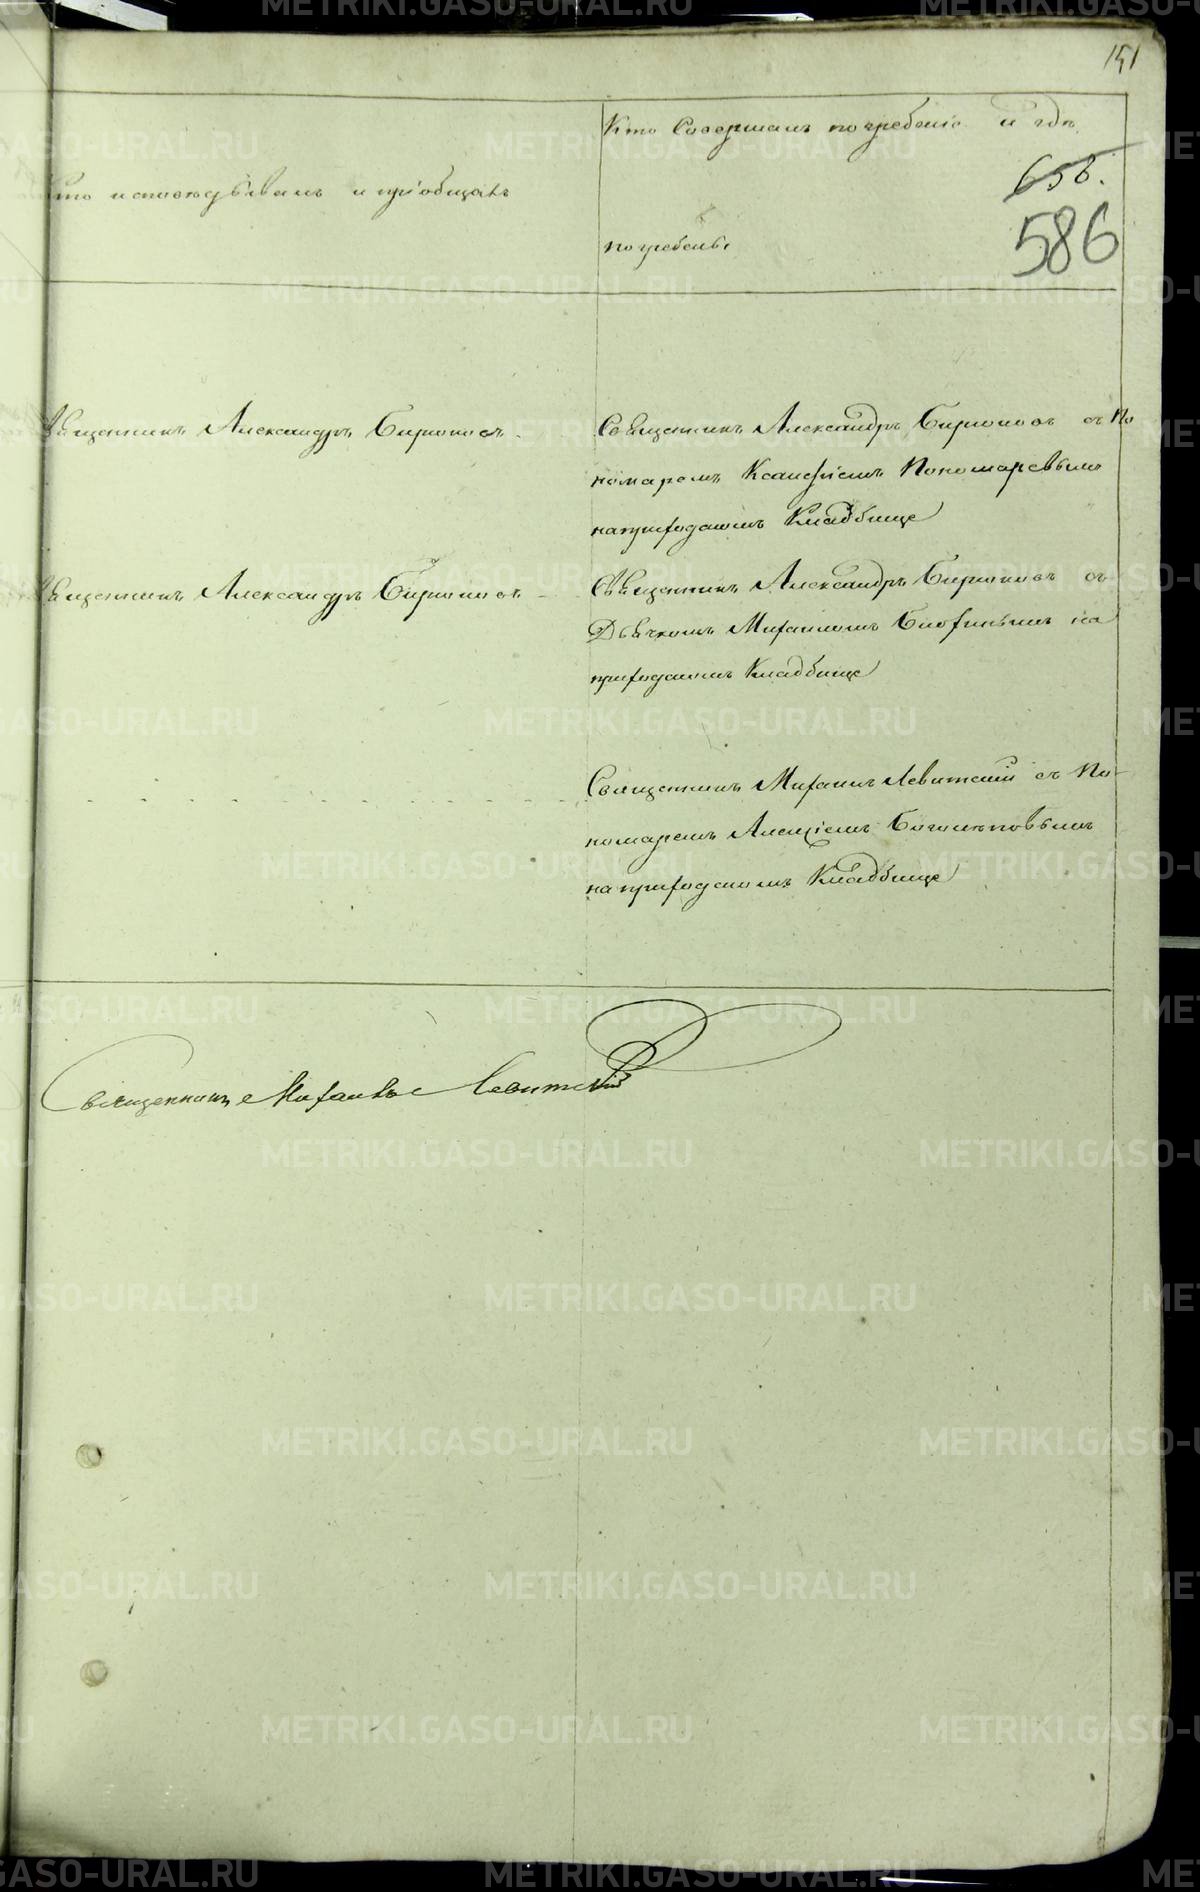 151
Кто исповѣдывалъ и пріобщалъ
Кто Совершалъ погребеніе и гдѣ
656.
586
погребены
Священникъ Александръ Бирюковъ
Священникъ Александръ Бирюковъ съ По
номаремъ Ксанфіемъ Пономаревымъ
на приходскомъ Кладбище
Священникъ Александръ Бирюковъ
Священникъ Александръ Бирюковъ съ
Дьячкомъ Михаиломъ на
приходскомъ Кладбище
Священникъ Михаилъ Левитскій съ По-
номаремъ Алексіемъ Боголѣповымъ
на приходскомъ Кладбище
Священникъ Михаилъ Левитскій
METRIKI.GASO-URAL.RU